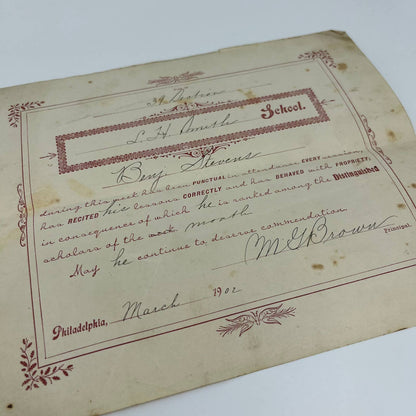 39 Section
L. H. Smith School.
Benj Stevens
during this week has been PUNCTUAL in attendance EVERY session,
has RECITED his lessons CORRECTLY and has BEHAVED with PROPRIETY;
in consequence of which he is ranked among the Distinguished
scholars of the week month
May he continue to deserve commendation.
M G Brown
Principal.
Philadelphia, March 1902